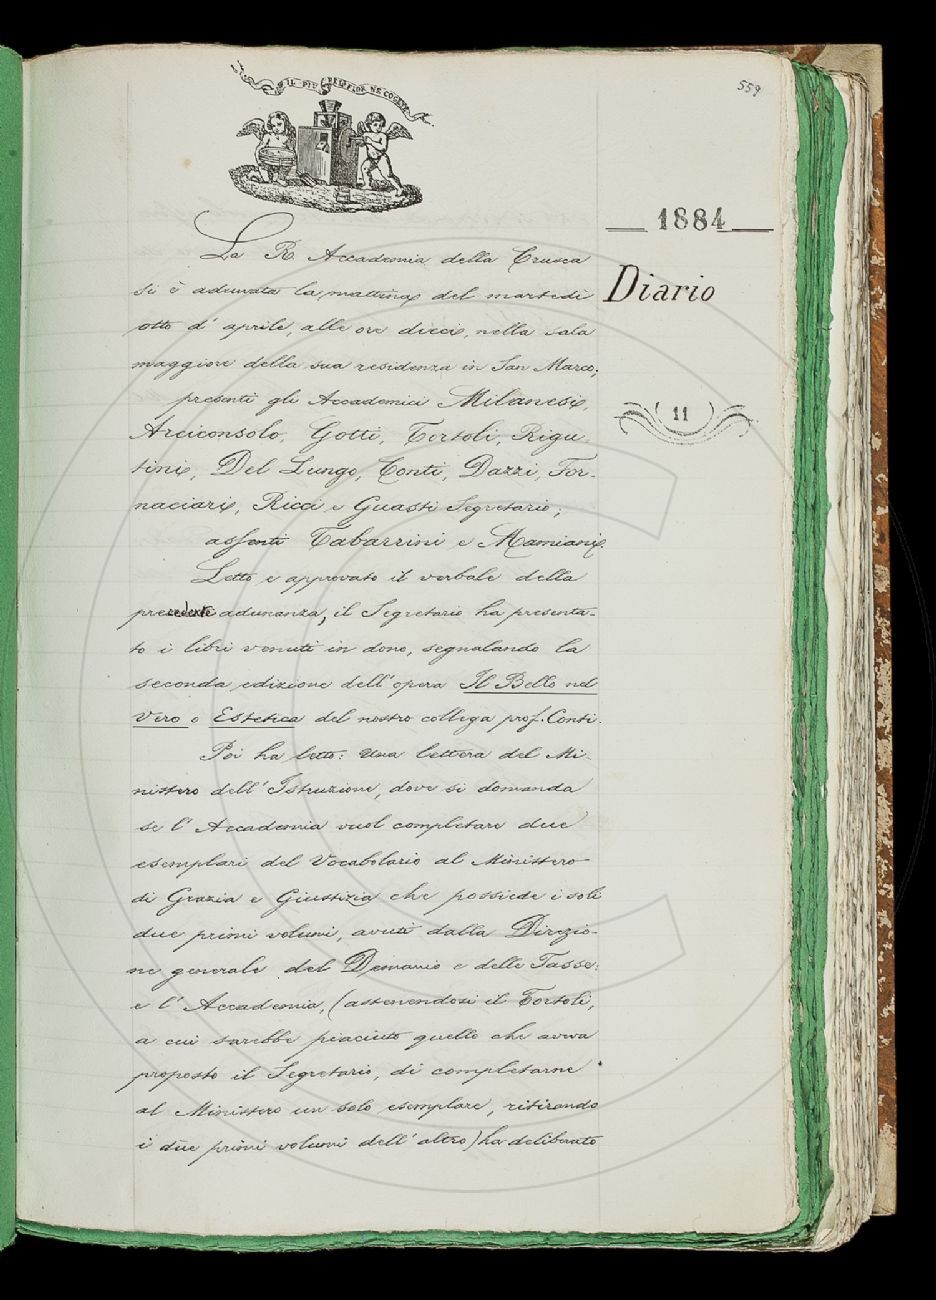 IL PIÙ BEL FIOR NE COGLIE
559
1884
Diario
11
La R. Accademia della Crusca
si è adunata la mattina del martedì
otto d' aprile, alle ore dieci, nella sala
maggiore della sua residenza in San Marco;
presenti gli Accademici Milanesi,
Arciconsolo, Gotti, Tortoli, Rigu-
tini, Del Lungo, Conti, Dazzi, For-
naciari, Ricci e Guasti Segretario;
assenti Tabarrini e Mamiani.
Letto e approvato il verbale della
precedente adunanza, il Segretario ha presenta-
to i libri venuti in dono, segnalando la
seconda edizione dell' opera Il Bello nel
Vero o Estetica del nostro collega prof. Conti.
Poi ha letto: Una lettera del Mi-
nistero dell' Istruzione, dove si domanda
se l' Accademia vuol completare due
esemplari del Vocabolario al Ministero
di Grazia e Giustizia che possiede i soli
due primi volumi, avuti dalla Direzio-
ne generale del Demanio e delle Tasse:
e l' Accademia, (astenendosi il Tortoli,
a cui sarebbe piaciuto quello che aveva
proposto il Segretario, di completarne
al Ministero un solo esemplare, ritirando
i due primi volumi dell' altro) ha deliberato